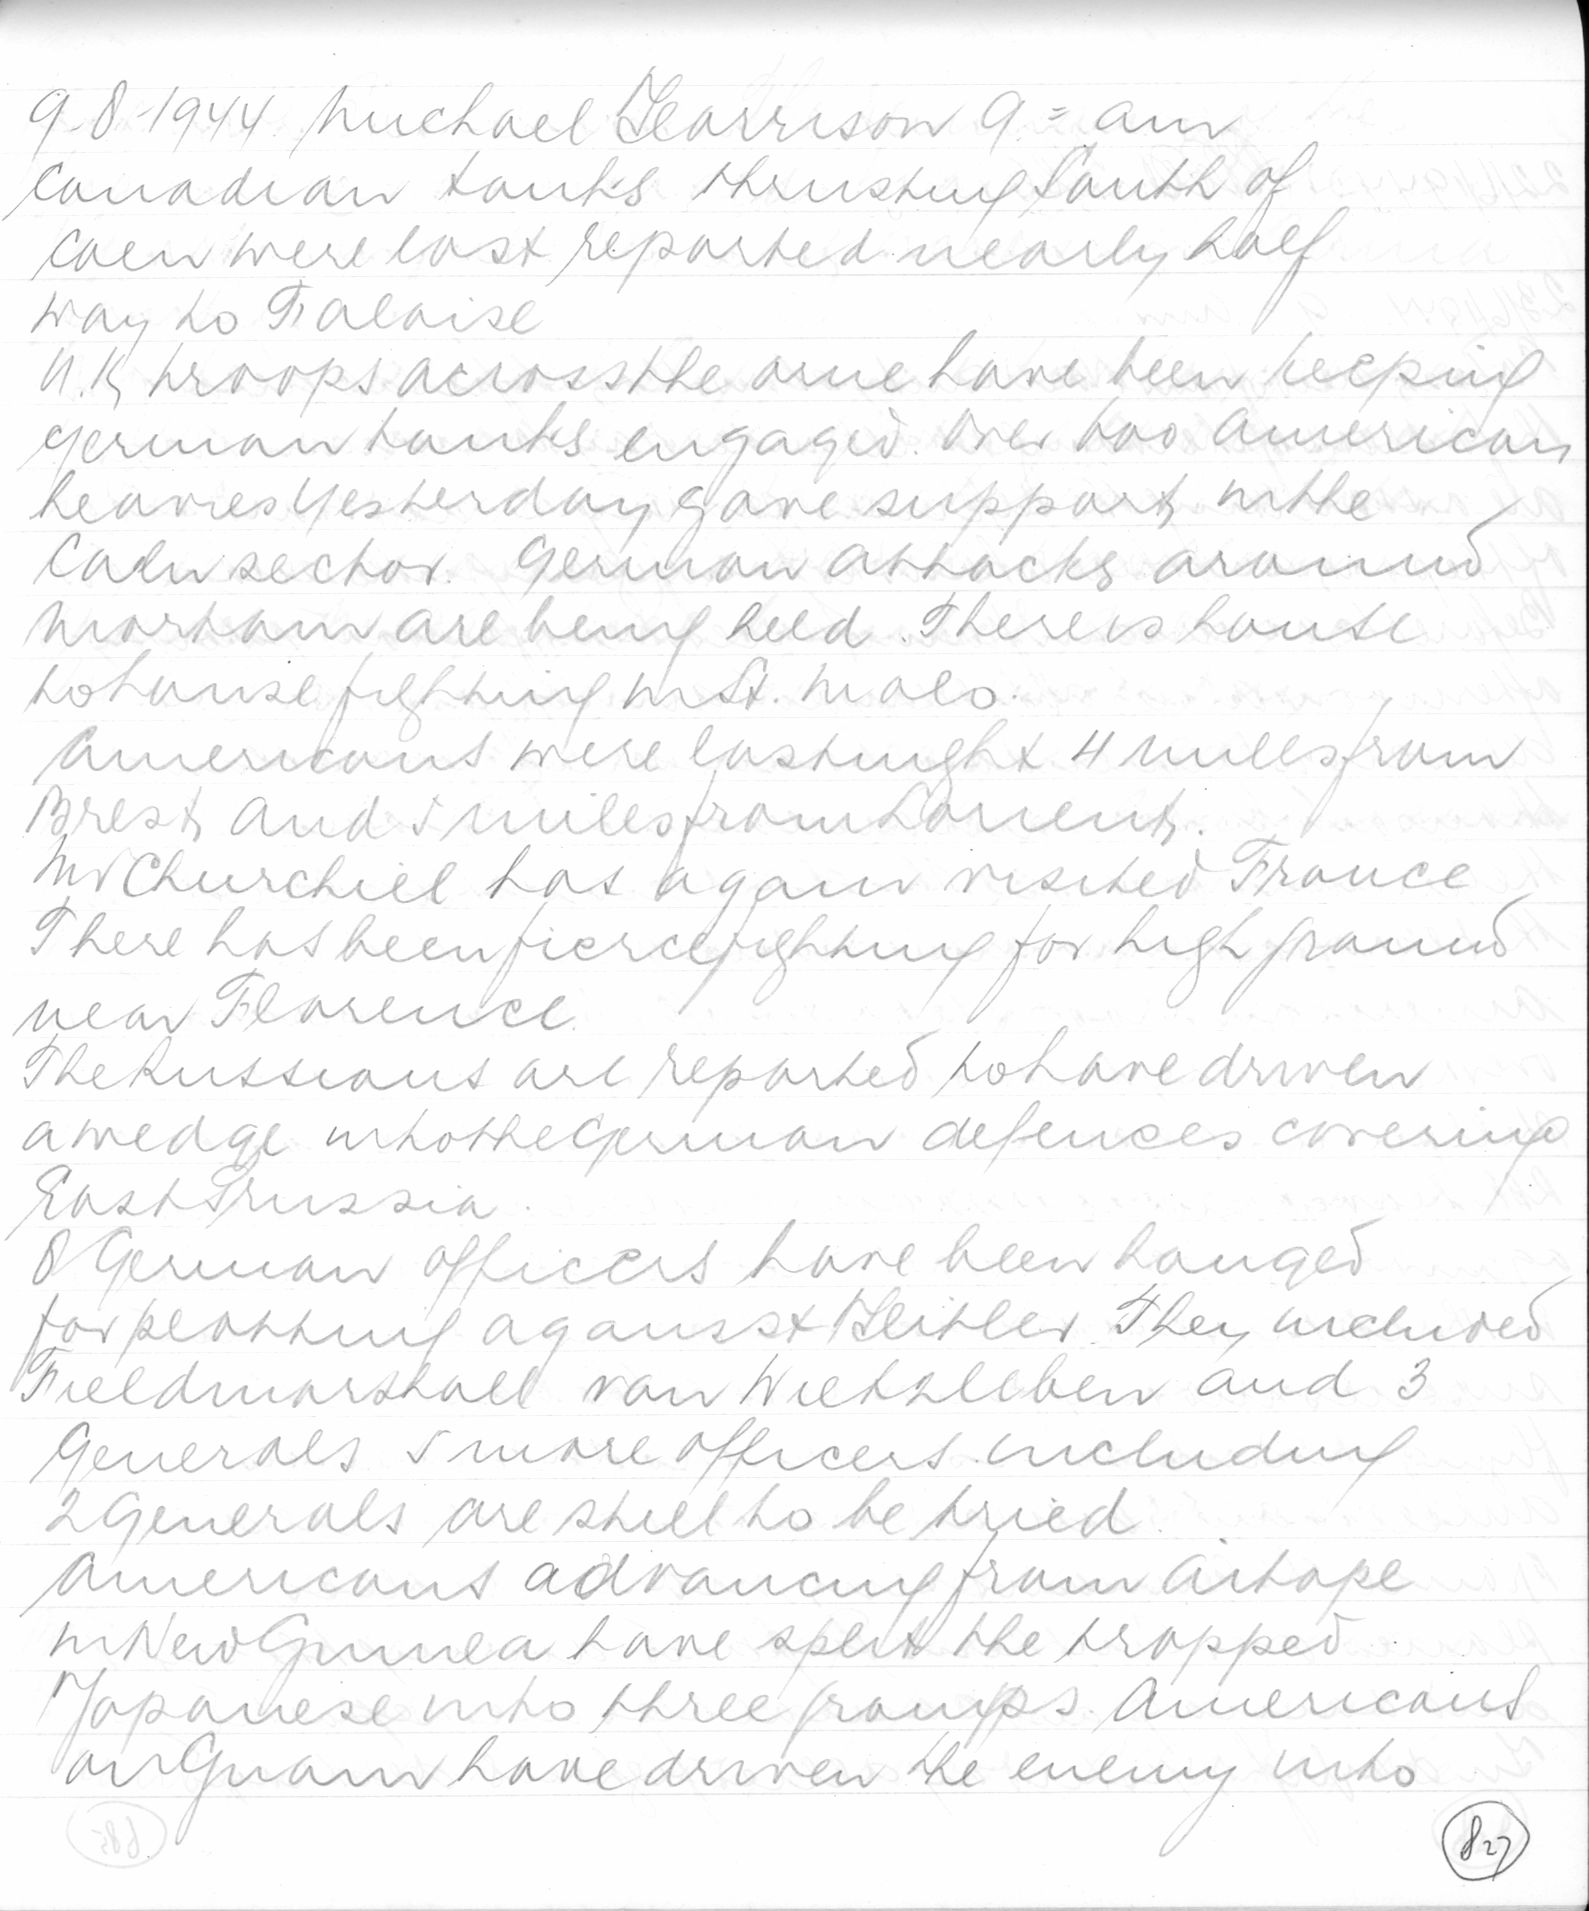 9-8-1944 Michael Harrison 9= am
Canadian tanks thrusting South of
Caen were last reported nearly half
way to Falaise
U.K. troops across the orne have been keeping
german tanks engaged. Over 600 American
heavies Yesterday gave support in the
Caen sector. German attacks around
Mortain are being held. There is house
to house fighting in St. Malo.
Americans were last night 4 miles from
Brest and 5 miles from Lorient.
Mr Churchill has again visited France
There has been fierce fighting for high ground
near Florence.
The Russians are reported to have driven
a wedge into the German defences covering
East Prussia.
8 German officers have been hanged
for plotting against Hitler. They included
Fieldmarshall von Witzleben and 3
Generals 5 more officers including
2 Generals are still to be tried.
Americans advancing from Aitape
in New Guinea have split the trapped
Japanese into three groups. Americans
on Guam have driven the enemy into
827